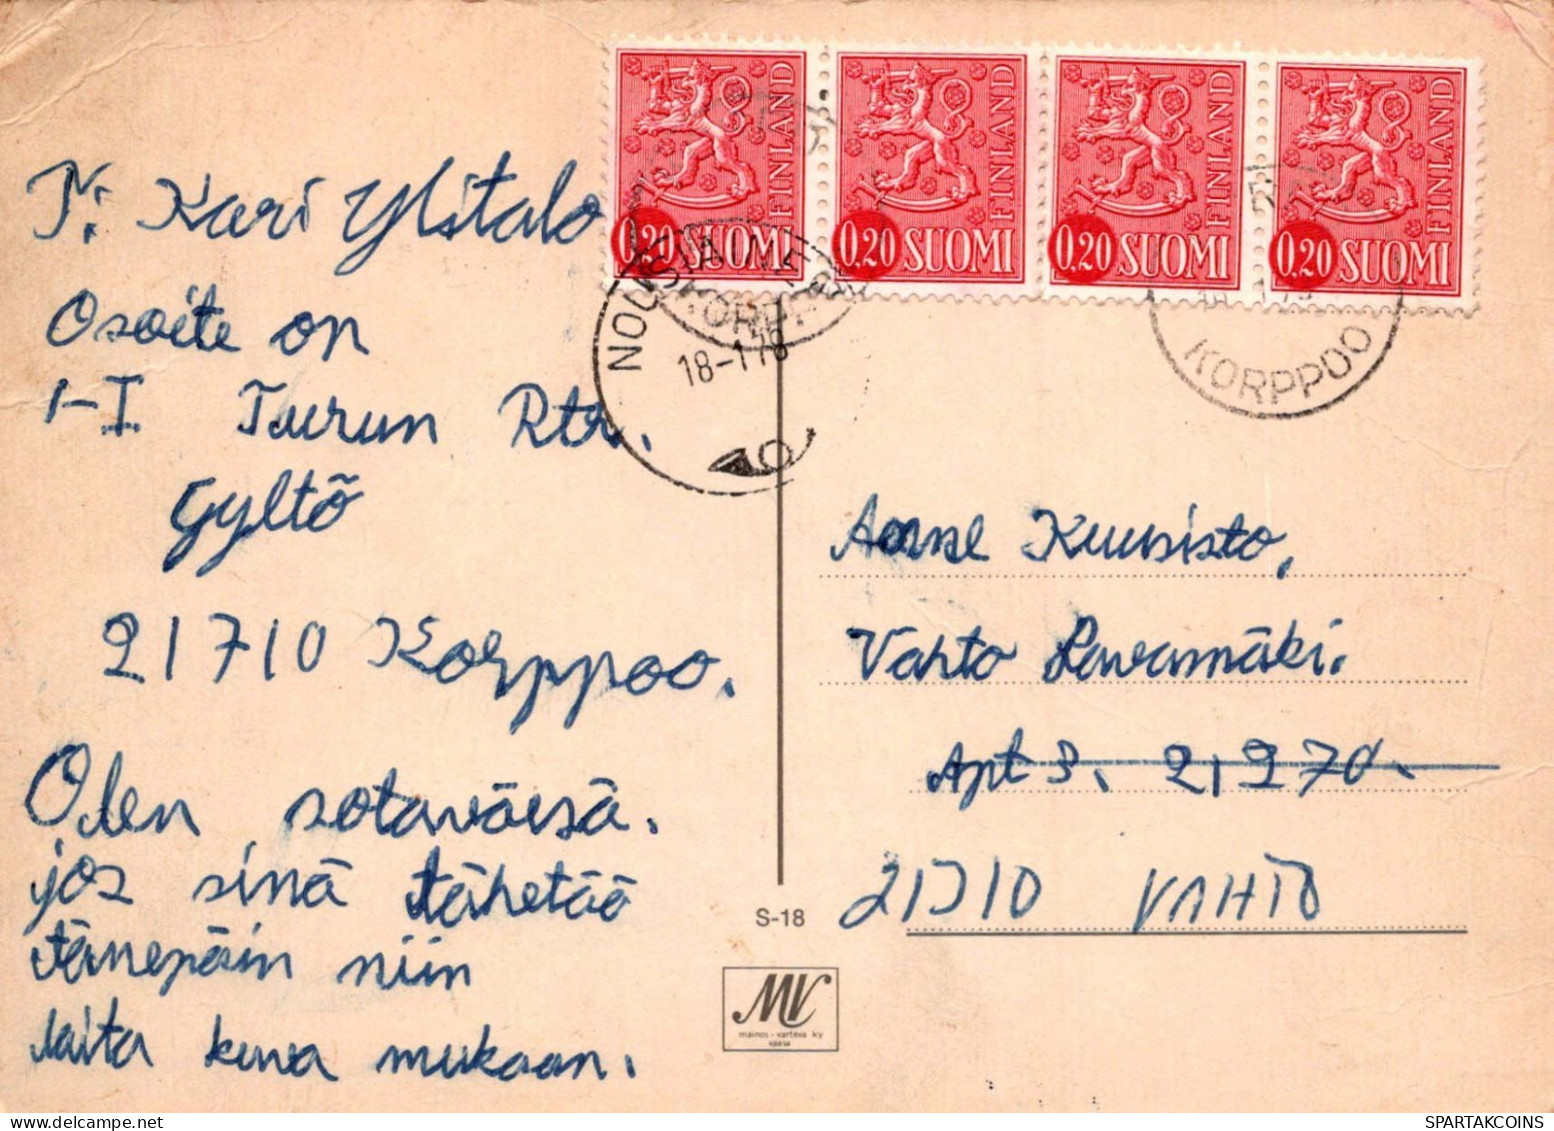 T. Kari Ylitalo
Osoite on
1-I Turun Rtr.
Gyltö
21710 Korppoo.
Olen sotaväessä.
jos sinä tähetää
tännepäin niin
laita kuva mukaan.
FINLAND
0,20 SUOMI
FINLAND
0,20 SUOMI
FINLAND
0,20 SUOMI
FINLAND
0,20 SUOMI
18-1 78
KORPPOO
Kuusisto,
Vahto Lavamäki.
Apt 3. 21270.
21310 VAHTO
S-18
MV
mainos - varteva ky
vaasa
SPARTAKCOINS.COM